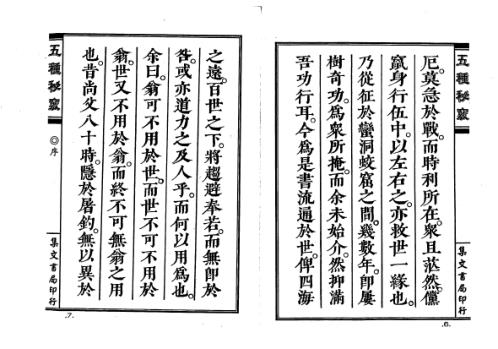 五種秘竅
厄莫急於戰。而時利所在。衆且茫然。儻
竄身行伍中。以左右之。亦救世一緣也。
乃從征於蠻洞蛟窟之間。幾數年。即屢
樹奇功。爲衆所掩。而余未始介。然抑滿
吾功行耳。今爲是書流通於世。俾四海
集文書局印行
.6.
之遠。百世之下。將趨避奉若。而無即於
咎。或亦道力之及人乎。而何以用爲也。
余曰。翁可不用於世。而世不可不用於
翁。世又不用於翁。而終不可無翁之用
也。昔尚父八十時。隱於屠釣。無以異於
五種秘竅
◎序
集文書局印行
.7.